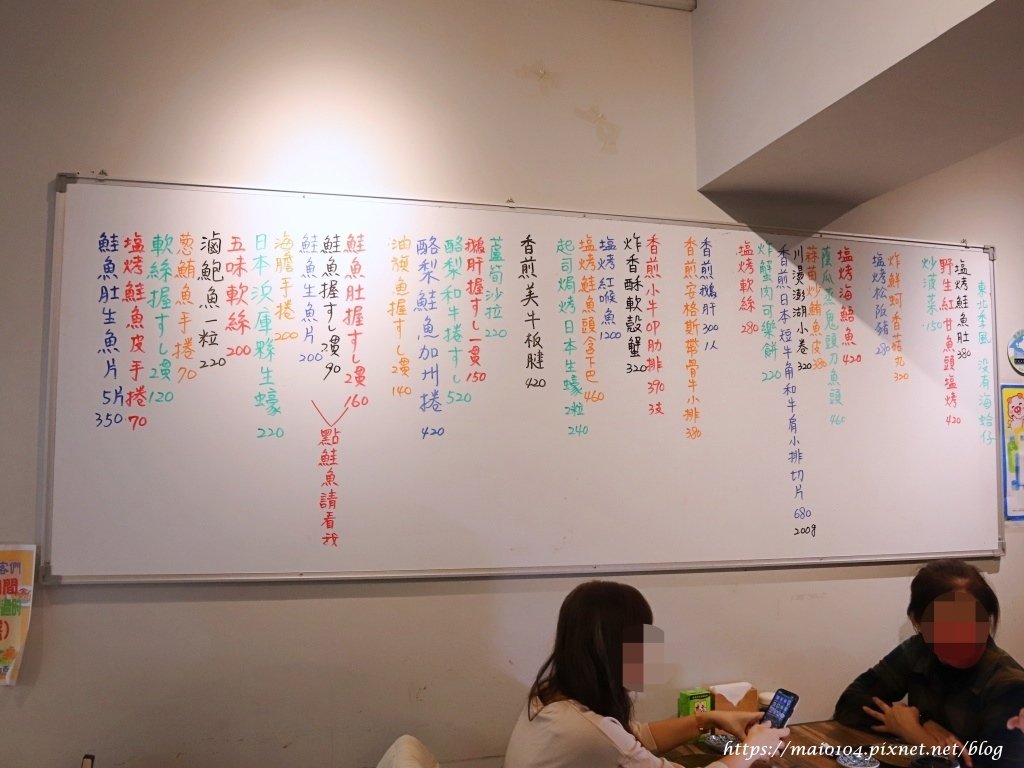 東北季風 沒有海蛤仔
塩烤鮭魚肚 380
野生紅甘魚頭塩烤 420
炒菠菜 150
炸鮮蚵香菇丸 320
塩烤松阪豬 280
塩烤海鱺魚 420
蔭瓜蒸鬼頭刀魚頭 460
蒜苟炒鮪魚皮 380
川燙澎湖小卷 320
香煎日本短牛角和牛肩小排切片 680 200g
炸蟹肉可樂餅 220
塩烤軟絲 280
香煎鵝肝 300 1人
香煎安格斯帶骨牛小排 380
香煎小牛OP肋排 390 3支
炸香酥軟殼蟹 320
塩烤紅喉魚 1200
塩烤鮭魚頭含下巴 460
起司焗烤日本生蠔 2粒 240
香煎美牛板腱 420
蘆筍沙拉 220
鵝肝握すし一貫 150
酪梨和牛捲すし 520
酪梨鮭魚加州捲 420
油魚握すし2貫 140
鮭魚肚握すし2貫 160
鮭魚握すし2貫 90
鮭魚生魚片 200
點鮭魚請看我
海膽手捲 200
日本浜庫縣生蠔 220
五味軟絲 200
滷鮑魚一粒 220
蔥鮪魚手捲 70
軟絲握すし2貫 120
塩烤鮭魚皮手捲 70
鮭魚肚生魚片 5片 350
客們
間
https://maio104.pixnet.net/blog